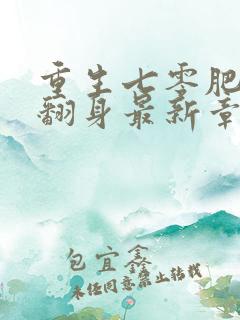 重生七零肥
翻身最新章
包宜鑫
未经同意禁止转载